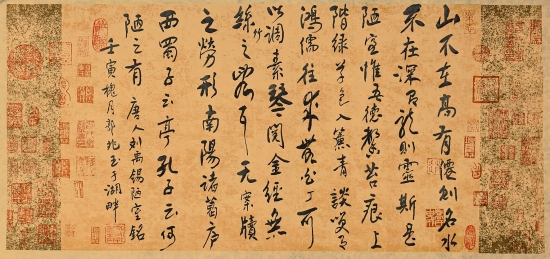 山不在高有僊則名水
不在深有龍則靈斯是
陋室惟吾德馨苔痕上
階綠草色入簾青談笑有
鴻儒往來無白丁可
以調素琴閱金經無
絲竹之亂耳无案牘
之勞形南陽諸葛廬
西蜀子云亭孔子云何
陋之有 唐人刘禹錫陋室銘
壬寅 月 于湖畔